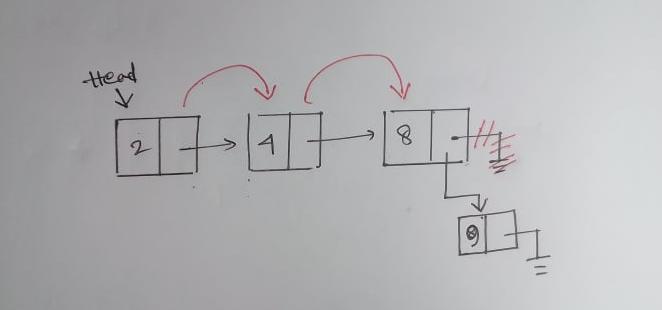 Head
2 4 8
9